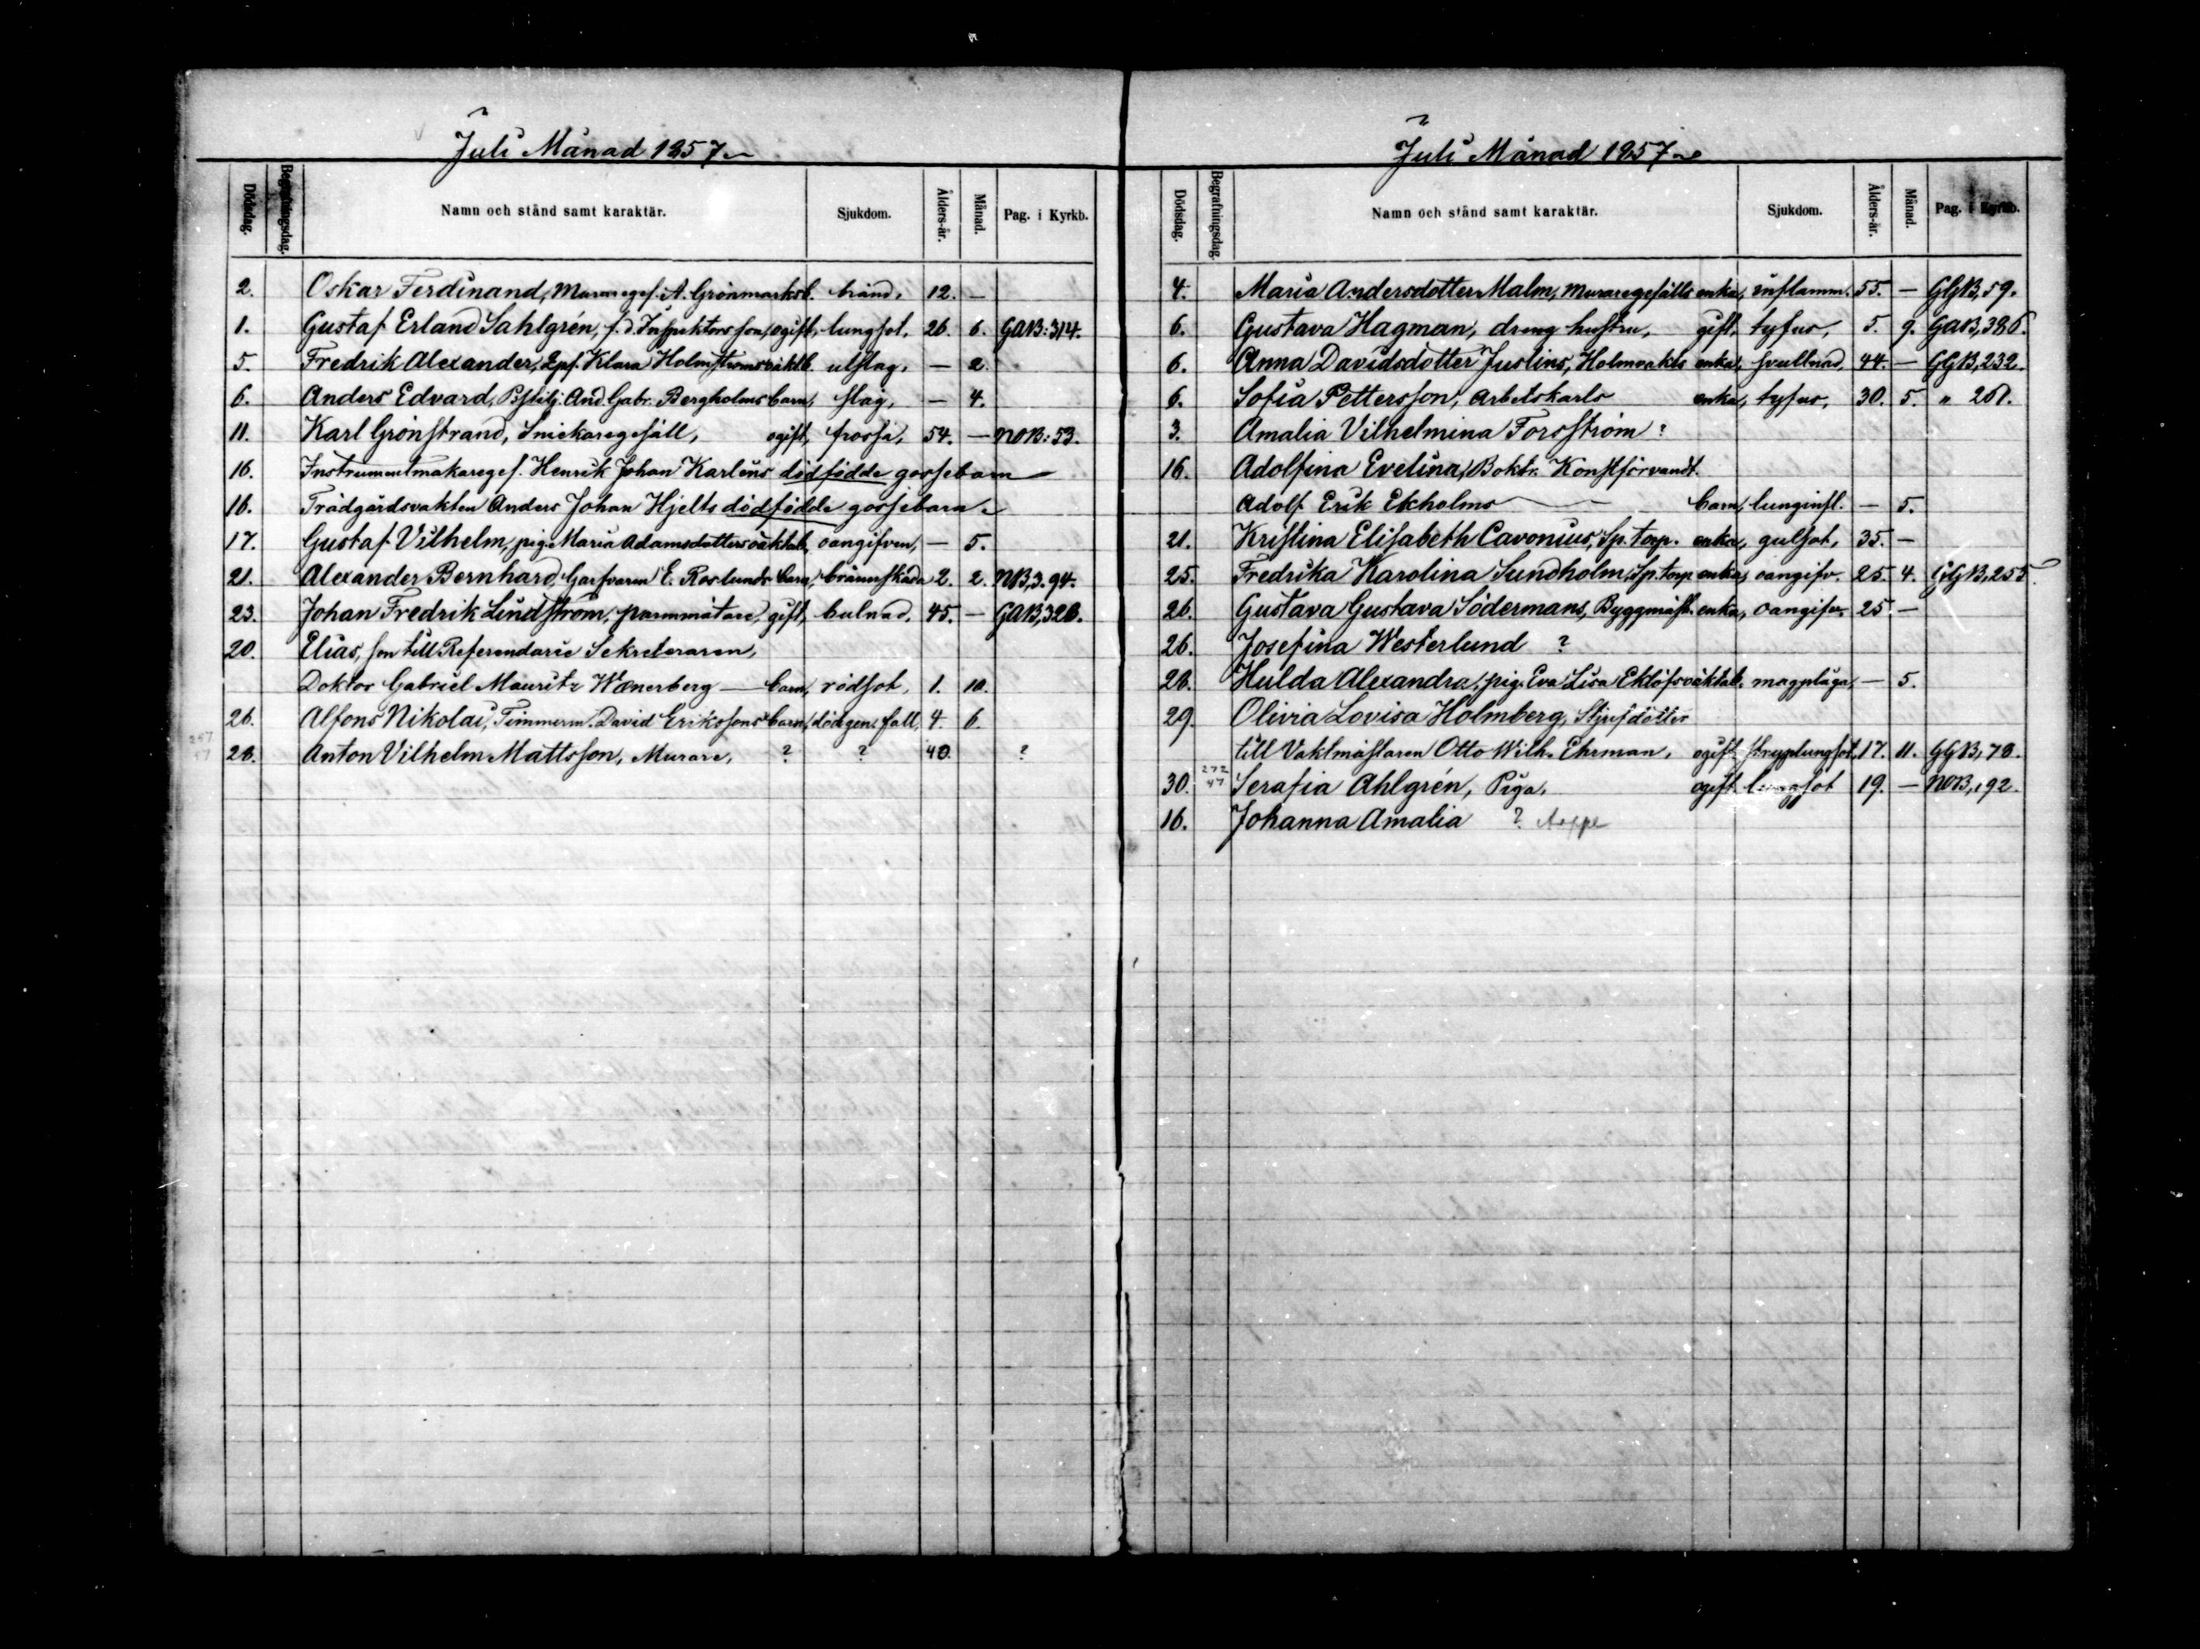 Juli Månad 1857
Dödsdag. Begrafningsdag. Namn och stånd samt karaktär. Sjukdom. Ålders-år. Månad. Pag. i Kyrkb.
2. Oskar Ferdinand, Muraregef. A. Grönmarksb. bränd, 12. —
1. Gustaf Erland Sahlgrén, f.d. Inspektors son, ogift, lungsot, 26. 6. GAB: 314.
5. Fredrik Alexander, Epf. Klara Holmströms oäktb. utslag, — 2.
6. Anders Edvard, Pstilj. And. Gabr. Bergholms barn, slag, — 4.
11. Karl Grönstrand, Snickaregesäll, ogift, frossa, 54. — NOB: 53.
16. Instrumentmakaregef. Henrik Johan Karléns dödfödde gossebarn
16. Trädgårdsvakten Anders Johan Hjelts dödfödde gossebarn
17. Gustaf Vilhelm, pig. Maria Adamsdotters oäktab, oangifven, — 5.
21. Alexander Bernhard, Garfvaren E. Roslunds barn, brännskada 2. 2. NB, 3. 94.
23. Johan Fredrik Lindström, parmmätare, gift, bulnad, 45. — GAB, 328.
20. Elias, son till Referendarie Sekreteraren,
Doktor Gabriel Mauritz Wænerberg — barn, rödsot, 1. 10.
26. Alfons Nikolai, Timmerm. David Erikssons barn, död gen. fall, 4. 6.
28. Anton Vilhelm Mattsson, Murare, ? ? 40. ?
Juli Månad 1857
Dödsdag. Begrafningsdag. Namn och stånd samt karaktär. Sjukdom. Ålders-år. Månad. Pag. i Kyrkb.
4. Maria Andersdotter Malm, Muraregesälls enka, inflamm. 55. — GGB, 59.
6. Gustava Hagman, dreng hustru, gift, tyfus, 5. 9. GAB, 386.
6. Anna Davidsdotter Justins, Holmvakts enka, svullnad, 44. — GGB, 232.
6. Sofia Pettersson, Arbetskarls enka, tyfus, 30. 5. " 261.
3. Amalia Vilhelmina Forsström ?
16. Adolfina Evelina, Boktr. Konstförvandt.
Adolf Erik Ekholms — barn, lunginfl. — 5.
21. Kristina Elisabeth Cavonius, Sp. torp. enka, gulsot, 35. —
25. Fredrika Karolina Sundholm, Sp. torp enka, oangifv. 25. 4. GGB, 255.
26. Gustava Gustava Södermans, Byggmäst. enka, oangifv. 25 —
26. Josefina Westerlund ?
28. Hulda Alexandra, pig. Eva Lisa Eklöfs oäktab. magplåga, — 5.
29. Olivia Lovisa Holmberg, Stjufdotter
till Vaktmästaren Otto Wilh. Ehrman, ogift stryplungsot, 17. 11. GGB, 78.
30. 272 47 Serafia Ahlgrén, Piga, ogift lungsot 19. — NOB, 192.
16. Johanna Amalia ?